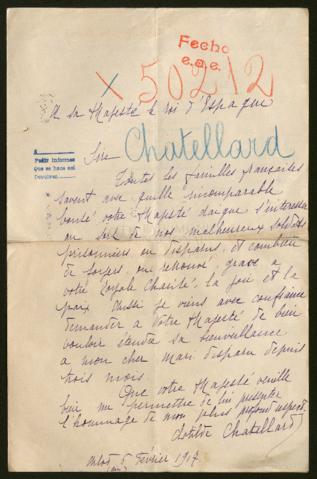 Fecho
e.a.e.
X 50212
A sa Majesté le roi d'Espagne
A
Pedir informes
que se hace así
Sire
Chatellard
Toutes les familles françaises
savent avec quelle incomparable
bonté votre Majesté daigne s'intéresser
au sort de nos malheureux soldats
prisonniers ou disparus, et combien
de foyers ont retrouvé, grace a
votre Royale Charité, la joie et la
paix. Aussi je viens avec confiance
demander a Votre Majesté de bien
vouloir étendre sa bienveillance
a mon cher mari disparu depuis
trois mois.
Que votre Majesté veuille
bien me permettre de lui présenter
l'hommage de mon plus profond respect.
Clotilde Chatellard
5 Février 1917